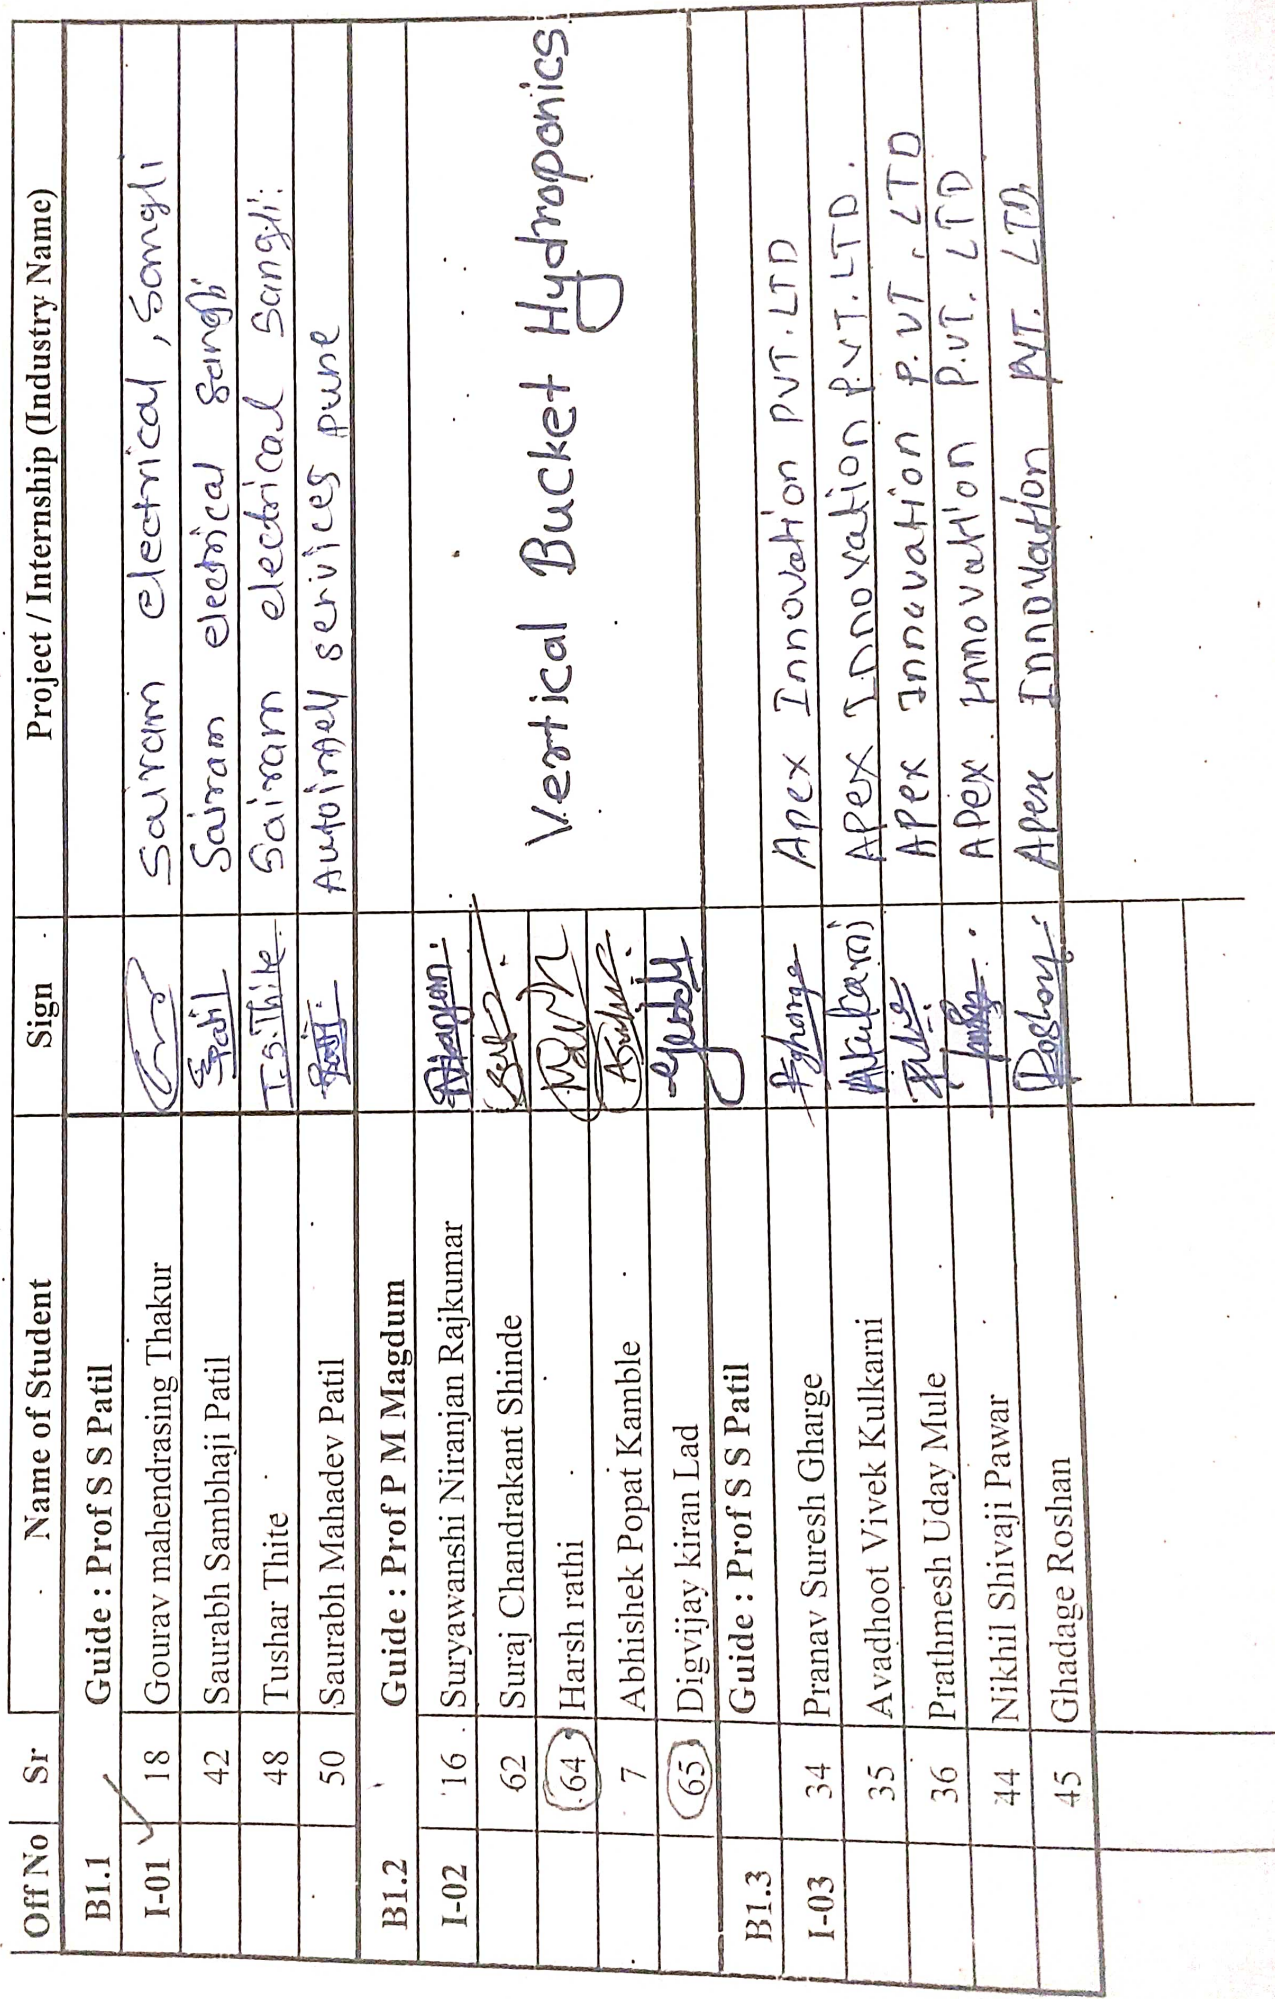 Off No Sr Name of Student Sign Project / Internship (Industry Name)
B1.1 Guide : Prof S S Patil
I-01 18 Gourav mahendrasing Thakur Sairam electrical, Sangli
42 Saurabh Sambhaji Patil SPatil Sairam electrical Sangli
48 Tushar Thite T.S.Thite Sairam electrical Sangli.
50 Saurabh Mahadev Patil services pune
B1.2 Guide : Prof P M Magdum
I-02 16 Suryawanshi Niranjan Rajkumar
62 Suraj Chandrakant Shinde
64 Harsh rathi Vertical Bucket Hydroponics
7 Abhishek Popat Kamble
65 Digvijay kiran Lad
B1.3 Guide : Prof S S Patil
I-03 34 Pranav Suresh Gharge Pgharge Apex Innovation PVT. LTD
35 Avadhoot Vivek Kulkarni AKulkarni APex Innovation P.VT. LTD.
36 Prathmesh Uday Mule APex Innovation P.VT. LTD
44 Nikhil Shivaji Pawar APex Innovation P.VT. LTD
45 Ghadage Roshan Roshan Apex Innovation PVT. LTD.